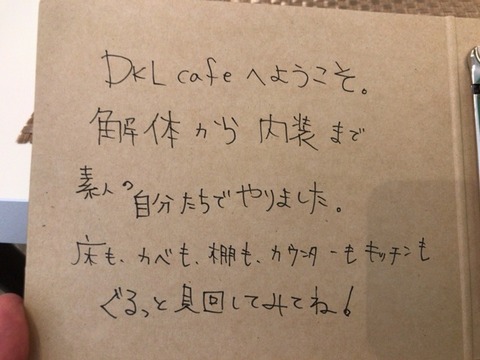 DKL cafeへようこそ。
解体から内装まで
素人の自分たちでやりました。
床も、カベも、棚も、カウンターもキッチンも
ぐるっと見回してみてね!